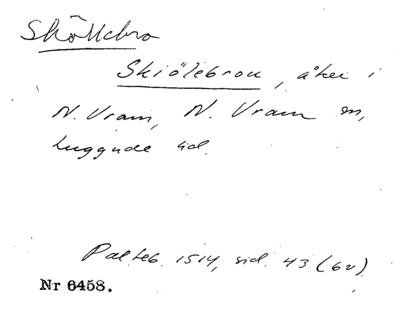 Sköllebro
Skiölebrou, åker i
N. Vram, N. Vram sn,
Luggude hd.
Palteb. 1514, sid. 43 (6v)
Nr 6458.